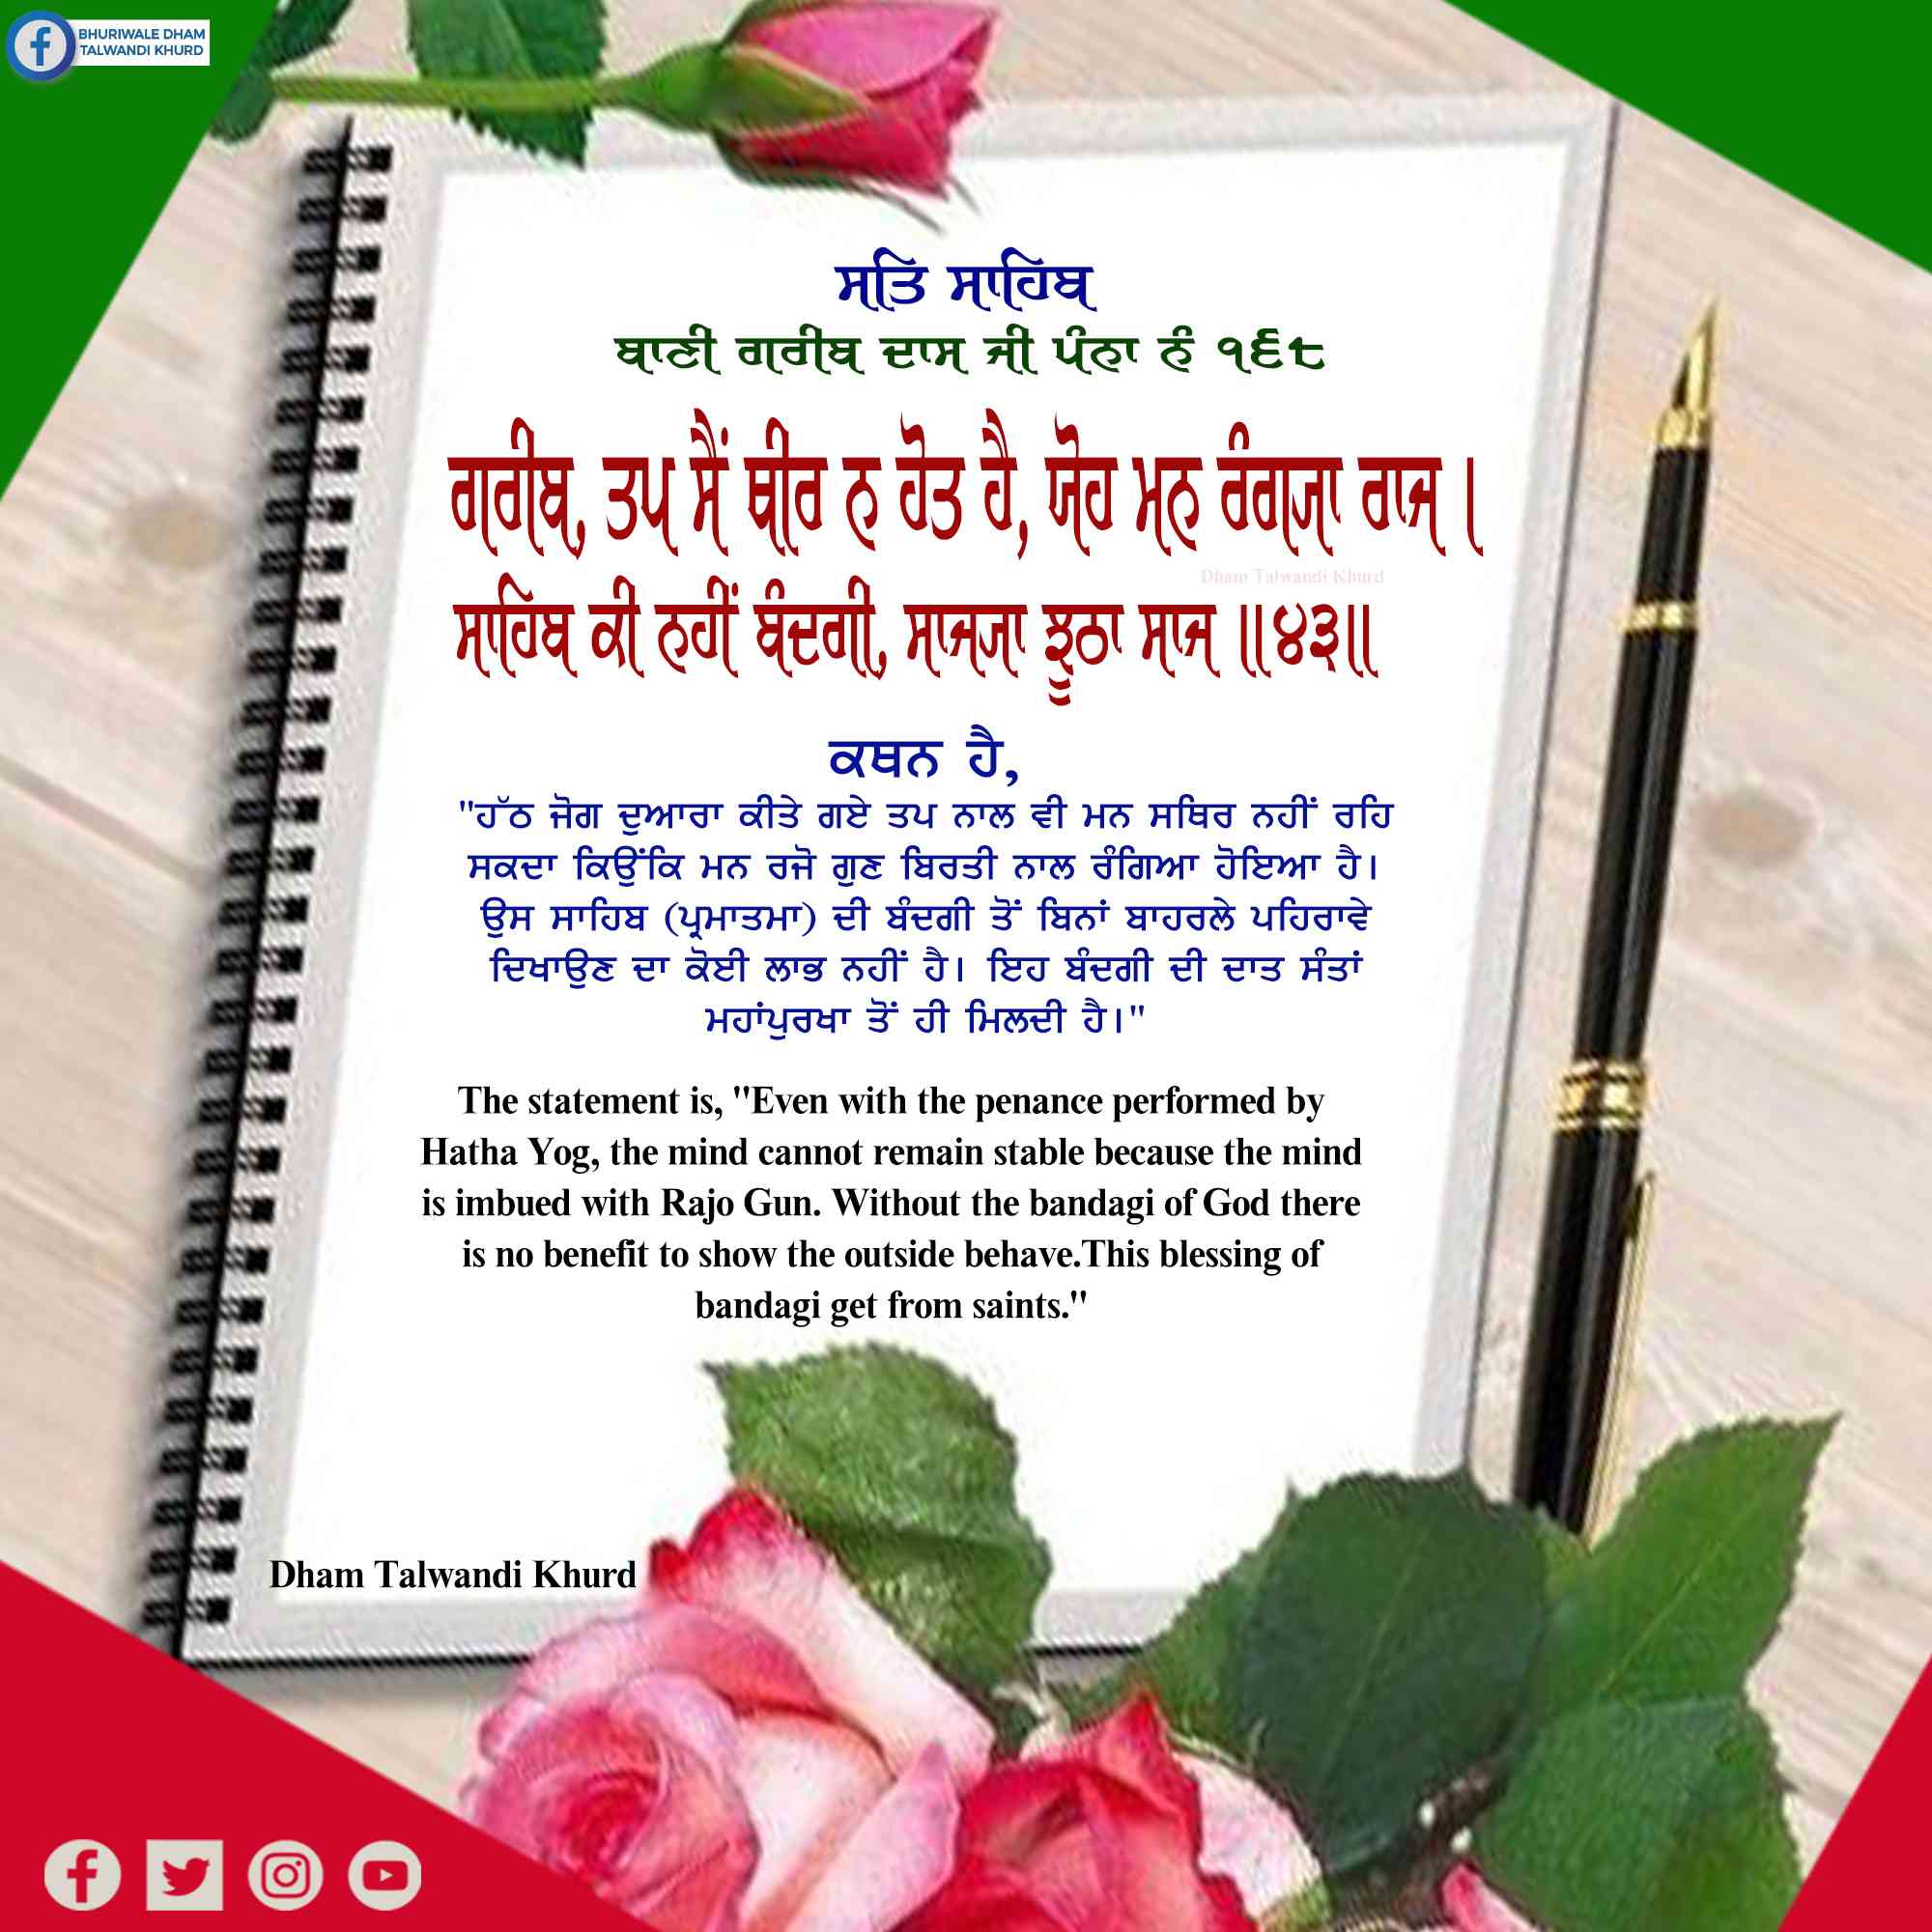 BHURIWALE DHAM
TALWANDI KHURD
ਸਤਿ ਸਾਹਿਬ
ਬਾਣੀ ਗਰੀਬ ਦਾਸ ਜੀ ਪੰਨਾ ਨੰ ੧੬੮
ਗਰੀਬ, ਤਪ ਸੈਂ ਥੀਰ ਨ ਹੋਤ ਹੈ, ਯੋਹ ਮਨ ਰੰਗਯਾ ਰਾਜ ।
Dham Talwandi Khurd
ਸਾਹਿਬ ਕੀ ਨਹੀਂ ਬੰਦਗੀ, ਸਾਜਯਾ ਝੂਠਾ ਸਾਜ ॥੪੩॥
ਕਥਨ ਹੈ,
"ਹੱਠ ਜੋਗ ਦੁਆਰਾ ਕੀਤੇ ਗਏ ਤਪ ਨਾਲ ਵੀ ਮਨ ਸਥਿਰ ਨਹੀਂ ਰਹਿ
ਸਕਦਾ ਕਿਉਂਕਿ ਮਨ ਰਜੋ ਗੁਣ ਬਿਰਤੀ ਨਾਲ ਰੰਗਿਆ ਹੋਇਆ ਹੈ।
ਉਸ ਸਾਹਿਬ (ਪ੍ਰਮਾਤਮਾ) ਦੀ ਬੰਦਗੀ ਤੋਂ ਬਿਨਾਂ ਬਾਹਰਲੇ ਪਹਿਰਾਵੇ
ਦਿਖਾਉਣ ਦਾ ਕੋਈ ਲਾਭ ਨਹੀਂ ਹੈ। ਇਹ ਬੰਦਗੀ ਦੀ ਦਾਤ ਸੰਤਾਂ
ਮਹਾਂਪੁਰਖਾ ਤੋਂ ਹੀ ਮਿਲਦੀ ਹੈ।"
The statement is, "Even with the penance performed by
Hatha Yog, the mind cannot remain stable because the mind
is imbued with Rajo Gun. Without the bandagi of God there
is no benefit to show the outside behave.This blessing of
bandagi get from saints."
Dham Talwandi Khurd